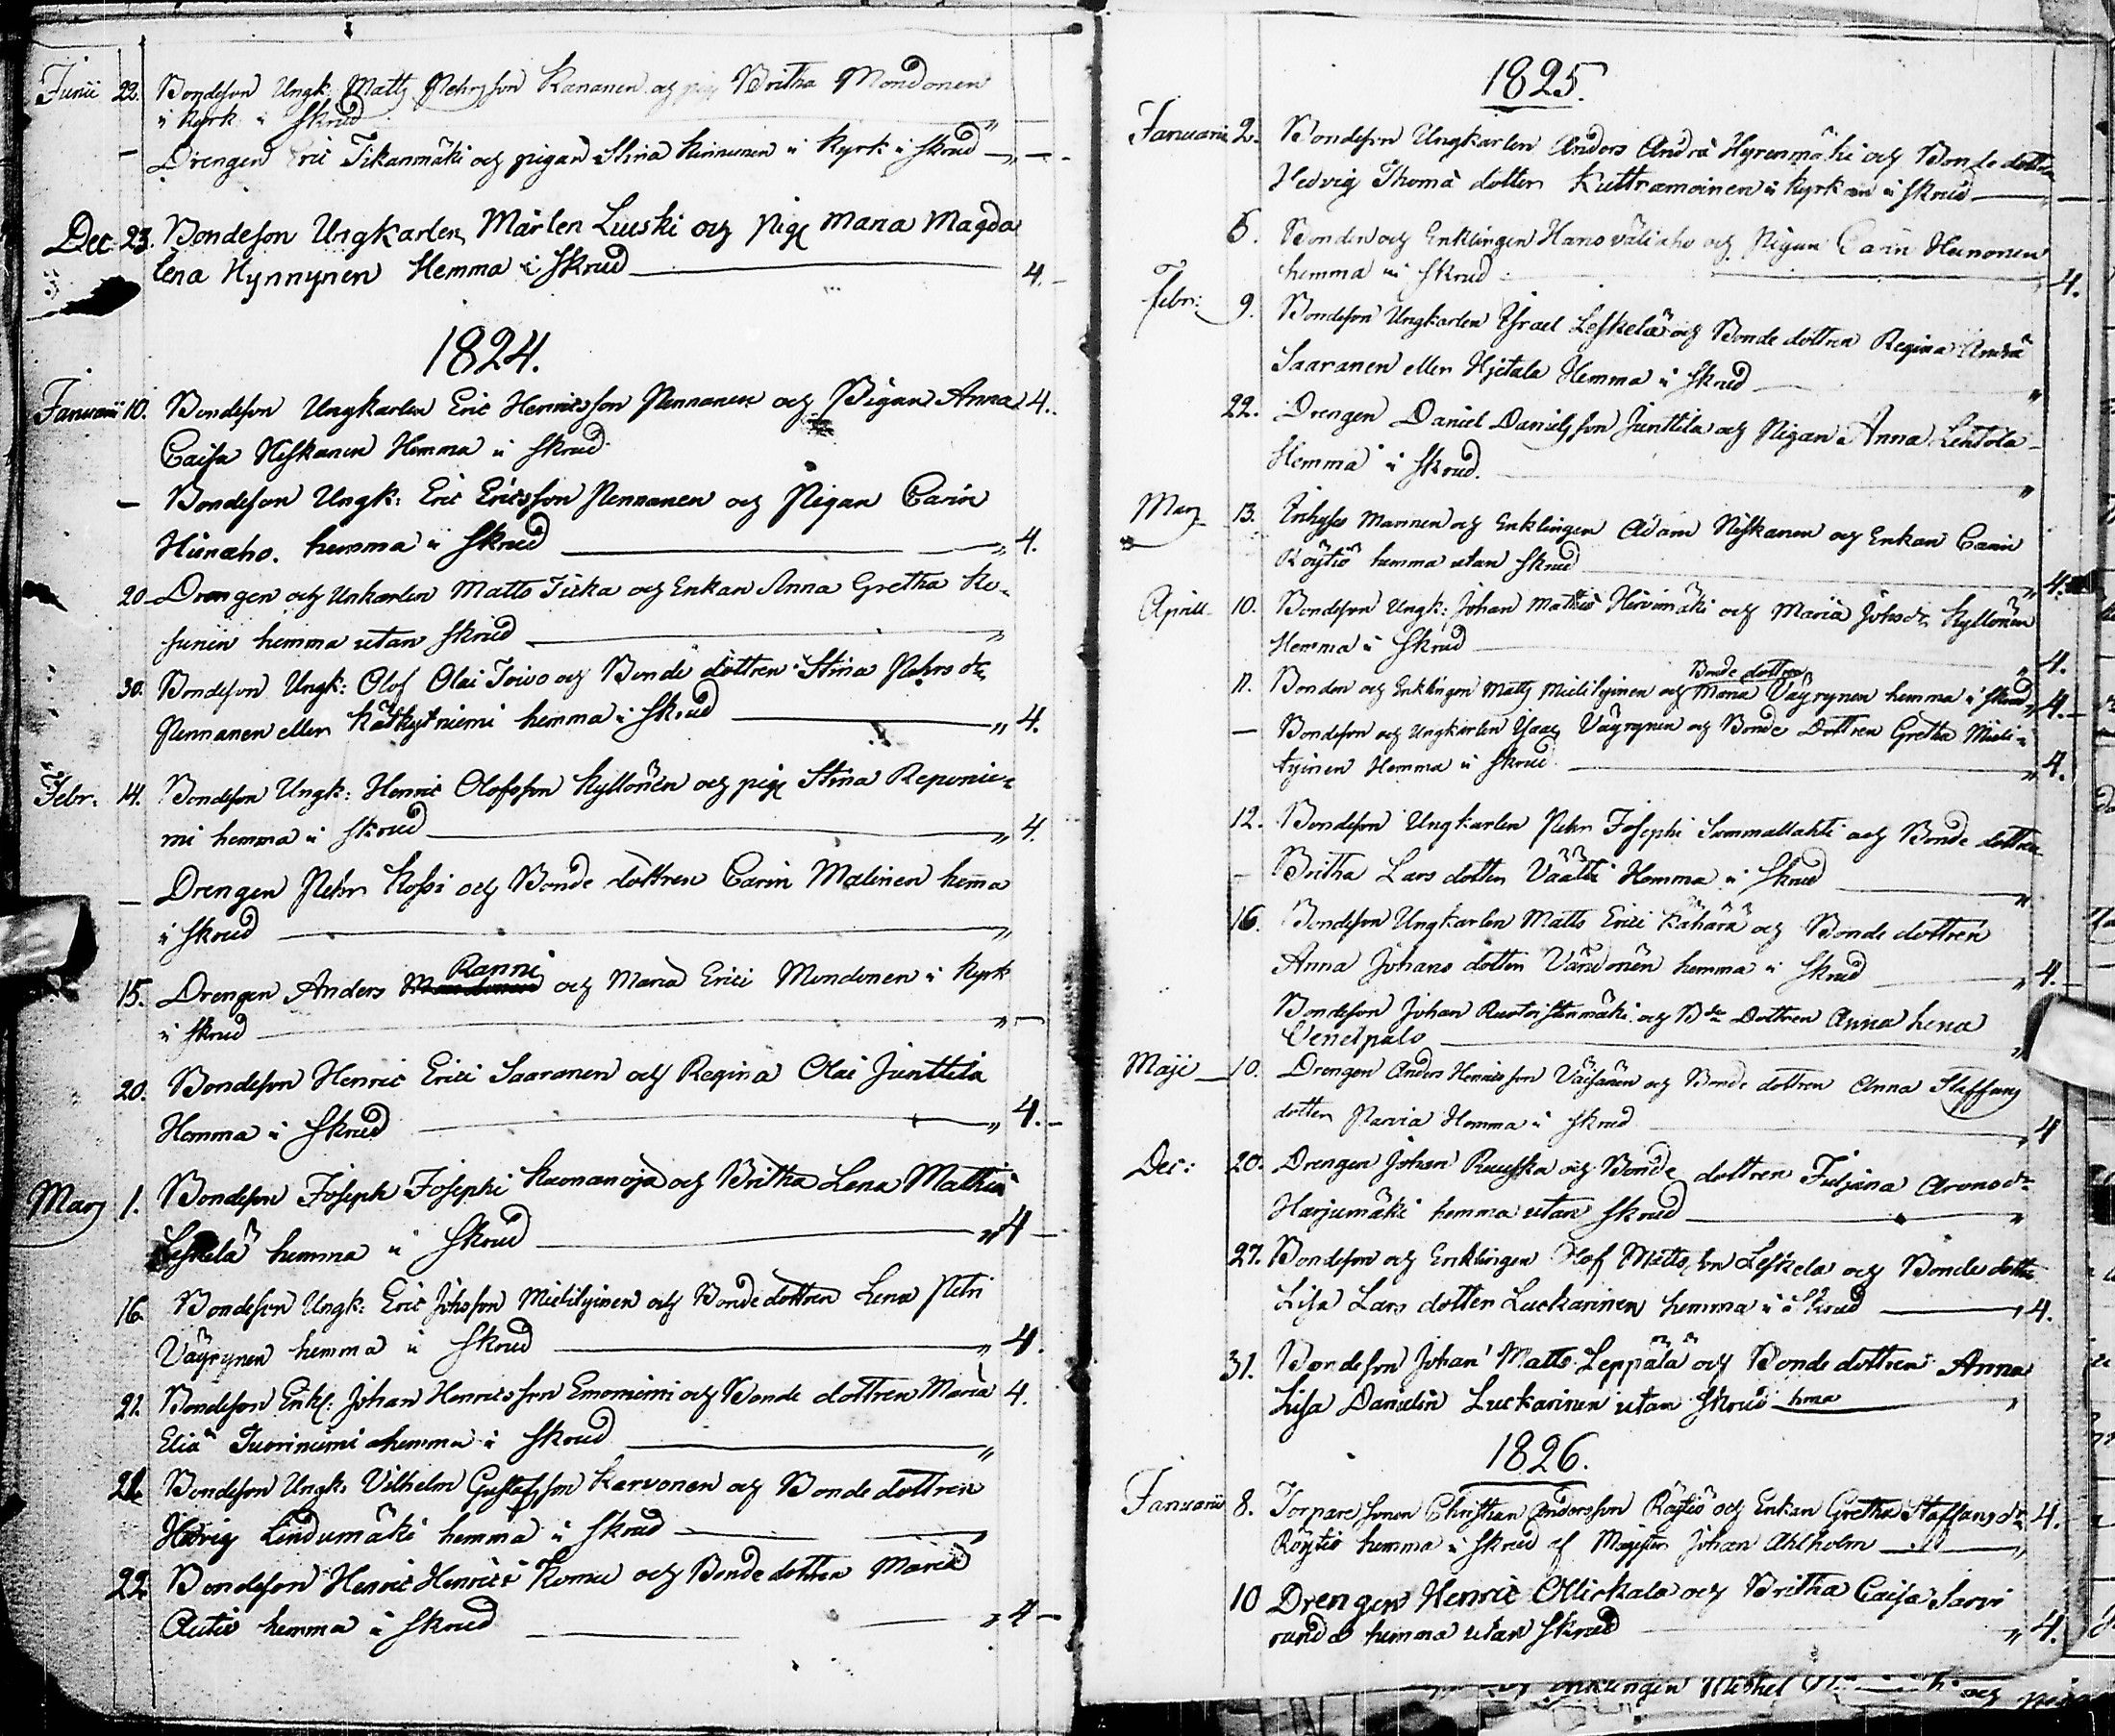 Junii 22. Bondeson Ungk: Matts Pehrsson Kananen och pig Britha Mondonen
i Kyrk i Skrud
— Drengen Eric Tikanmäki och pigan Stina Kinnunen i Kyrk i Skrud
Dec: 23. Bondeson Ungkarlen Mårten Luuski och Pig Maria Magda
lena Hynnynen Hemma i Skrud 4.
1824.
Januarii 10. Bondeson Ungkarlen Eric Henricsson Pennanen och Pigan Anna 4.
Caisa Niskanen Hemma i Skrud
— Bondeson Ungk: Eric Ericsson Pennanen och Pigan Carin
Hiiraho. hemma i Skrud „ 4.
20. Drengen och Unkarlen Matts Jicka och Enkan Anna Gretha Ke-
sunen hemma utan Skrud „
30. Bondeson Ungk: Olof Olai Toivo och Bonde dottren Stina Pehrs dr
Pennanen eller Kätkytniemi hemma i Skrud „ 4.
Febr: 14. Bondeson Ungk: Henric Olofsson Kyllönen och pig Stina Reponie-
mi hemma i Skrud „ 4.
— Drengen Pehr Kossi och Bonde dottren Carin Malinen hemma
i Skrud „
Ranni
15. Drengen Anders och Maria Erici Mondonen i Kyrk
i Skrud „
20. Bondeson Henric Erici Saaranen och Regina Olai Junttila
Hemma i Skrud „ 4.
Mars 1. Bondeson Joseph Josephi Kuonanoja och Britha Lena Mathiæ
Leskelä hemma i Skrud „ 4
16. Bondeson Ungk: Eric Johsson Mielityinen och Bonde dottren Lena Petri
Väyrynen hemma i Skrud „ 4.
21. Bondeson Enkl: Johan Henricsson Emoniemi och Bonde dottren Maria 4.
Eliæ Tuoriniemi hemma i Skrud „
21. Bondeson Ungk: Vilhelm Gustafsson Karvonen och Bonde dottren
Hedvig Lindumäki hemma i Skrud „
22. Bondeson Henric Henrici Komu och Bonde dottren Maria
Autio hemma i Skrud „ 4
1825.
Januarii 2. Bondeson Ungkarlen Anders Andræ Hyrenmäki och Bonde dottren
Hedvig Thomæ dotter Kuttramoinen i Kyrkan i Skrud
6. Bonden och Enklingen Hans Väliaho och Pigan Carin Heinonen
hemma i Skrud 4.
Febr: 9. Bondeson Ungkarlen Israel Leskelä och Bonde dottren Regina Andræ
Saaranen eller Hjetala Hemma i Skrud „
22. Drengen Daniel Danielsson Junttila och Pigan Anna Lehtola
Hemma i Skrud. „
Mars 13. Inhyses mannen och Enklingen Adam Niskanen och Enkan Carin
Röytiö hemma utan Skrud „ 4.
Aprill 10. Bondeson Ungk: Johan Mathiæ Hirvimäki och Maria Johs dr Kyllönen
Hemma i Skrud „ 4.
Bonde dottren
11. Bonden och Enklingen Matts Mielityinen och Maria Väyrynen hemma i Skrud „ 4.
— Bondeson och Ungkarlen Isaac Väyrynen och Bonde Dottren Gretha Mieli-
tyinen Hemma i Skrud „ 4.
12. Bondeson Ungkarlen Pehr Josephi Summallahti och Bonde dottren
Britha Lars dotter Väätti Hemma i Skrud „
16. Bondeson Ungkarlen Matts Erici Kähärä och Bonde dottren
Anna Johans dotter Väisonen hemma i Skrud „ 4.
Bondeson Johan Ruotoistenmäki och Bde Dottren Anna Lena
Venetpalo „
Maji 10. Drengen Anders Henricsson Väisänen och Bonde dottren Anna Staffans
dotter Parvia Hemma i Skrud „ 4
Dec: 20. Drengen Johan Ruuska och Bonde dottren Juljana Arons dr
Harjumäki hemma utan Skrud „
27. Bondeson och Enklingen Olof Mattsson Leskelä och Bonde dottr
Lisa Lars dotter Luckarinen hemma i Skrud „ 4.
31. Bondeson Johan Matts Leppälä och Bonde dottren Anna
Lisa Danielis Luckarinen utan Skrud hma „
1826.
Januarii 8. Torpare sonen Christian Andersson Röytiö och Enkan Gretha Staffans dr 4.
Röytiö hemma i Skrud af Magister Johan Ahlholm „
10 Drengen Henric Ollickala och Britha Caisa Sarvi
randa hemma utan Skrud „ 4.
Enklingen Michel och